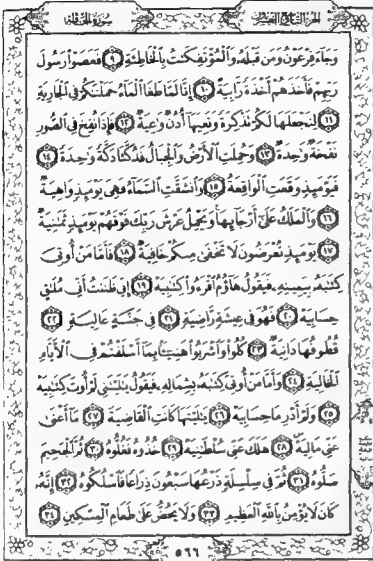 سُورَةُ الحَاقَّة
الجُزْءُ التَّاسِعُ وَالعِشْرُونَ
وَجَآءَ فِرْعَوْنُ وَمَن قَبْلَهُۥ وَٱلْمُؤْتَفِكَٰتُ بِٱلْخَاطِئَةِ ٩ فَعَصَوْا۟ رَسُولَ
رَبِّهِمْ فَأَخَذَهُمْ أَخْذَةً رَّابِيَةً ١٠ إِنَّا لَمَّا طَغَا ٱلْمَآءُ حَمَلْنَٰكُمْ فِى ٱلْجَارِيَةِ
١١ لِنَجْعَلَهَا لَكُمْ تَذْكِرَةً وَتَعِيَهَآ أُذُنٌ وَٰعِيَةٌ ١٢ فَإِذَا نُفِخَ فِى ٱلصُّورِ
نَفْخَةٌ وَٰحِدَةٌ ١٣ وَحُمِلَتِ ٱلْأَرْضُ وَٱلْجِبَالُ فَدُكَّتَا دَكَّةً وَٰحِدَةً ١٤
فَيَوْمَئِذٍ وَقَعَتِ ٱلْوَاقِعَةُ ١٥ وَٱنشَقَّتِ ٱلسَّمَآءُ فَهِىَ يَوْمَئِذٍ وَاهِيَةٌ
١٦ وَٱلْمَلَكُ عَلَىٰٓ أَرْجَآئِهَا وَيَحْمِلُ عَرْشَ رَبِّكَ فَوْقَهُمْ يَوْمَئِذٍ ثَمَٰنِيَةٌ
١٧ يَوْمَئِذٍ تُعْرَضُونَ لَا تَخْفَىٰ مِنكُمْ خَافِيَةٌ ١٨ فَأَمَّا مَنْ أُوتِىَ
كِتَٰبَهُۥ بِيَمِينِهِۦ فَيَقُولُ هَآؤُمُ ٱقْرَءُوا۟ كِتَٰبِيَهْ ١٩ إِنِّى ظَنَنتُ أَنِّى مُلَٰقٍ
حِسَابِيَهْ ٢٠ فَهُوَ فِى عِيشَةٍ رَّاضِيَةٍ ٢١ فِى جَنَّةٍ عَالِيَةٍ ٢٢
قُطُوفُهَا دَانِيَةٌ ٢٣ كُلُوا۟ وَٱشْرَبُوا۟ هَنِيٓـًٔۢا بِمَآ أَسْلَفْتُمْ فِى ٱلْأَيَّامِ
ٱلْخَالِيَةِ ٢٤ وَأَمَّا مَنْ أُوتِىَ كِتَٰبَهُۥ بِشِمَالِهِۦ فَيَقُولُ يَٰلَيْتَنِى لَمْ أُوتَ كِتَٰبِيَهْ
٢٥ وَلَمْ أَدْرِ مَا حِسَابِيَهْ ٢٦ يَٰلَيْتَهَا كَانَتِ ٱلْقَاضِيَةَ ٢٧ مَآ أَغْنَىٰ
عَنِّى مَالِيَهْ ٢٨ هَلَكَ عَنِّى سُلْطَٰنِيَهْ ٢٩ خُذُوهُ فَغُلُّوهُ ٣٠ ثُمَّ ٱلْجَحِيمَ
صَلُّوهُ ٣١ ثُمَّ فِى سِلْسِلَةٍ ذَرْعُهَا سَبْعُونَ ذِرَاعًا فَٱسْلُكُوهُ ٣٢ إِنَّهُۥ
كَانَ لَا يُؤْمِنُ بِٱللَّهِ ٱلْعَظِيمِ ٣٣ وَلَا يَحُضُّ عَلَىٰ طَعَامِ ٱلْمِسْكِينِ ٣٤
٥٦٦